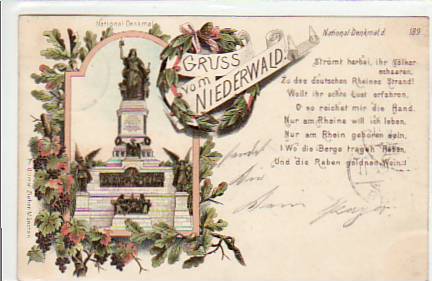 National-Denkmal
GRUSS
vom
NIEDERWALD.
National-Denkmal d. 189
Strömt herbei, ihr Völker-
schaaren,
Zu des deutschen Rheines Strand!
Wollt ihr echte Lust erfahren,
O so reichet mir die Hand.
Nur am Rheine will ich leben,
Nur am Rhein geboren sein,
Wo die Berge tragen Reben,
Und die Reben goldnen Wein!